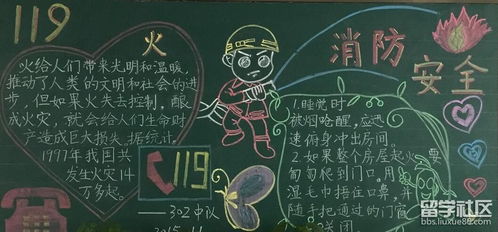 119
火
火给人们带来光明和温暖,
推动了人类的文明和社会的进
步,但如果火失去控制,酿
成火灾,就会给人们生命财
产造成巨大损失。据统计,
1997年我国共
发生火灾14
万多起。
119
——302中队
2015.11
消防
安全
1.睡觉时
被烟呛醒,应迅
速俯身冲出房间。
2.如果整个房屋起火,要
匍匐爬到门口,用
湿毛巾捂住口鼻,并
随手把通过的门窗
关闭
留学社区
bbs.liuxue86.com